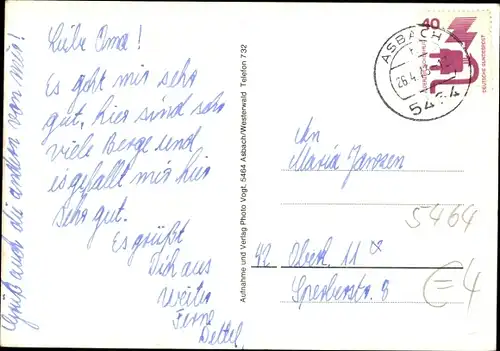 Liebe Oma!
Es geht mir sehr
gut, hier sind sehr
viele Berge und
es gefällt mir hier
sehr gut.
Es grüßt
Dich aus
weiter
Ferne
Dettel,
Grüß auch die andern von mir!
Aufnahme und Verlag Photo Vogt, 5464 Asbach/Westerwald Telefon 732
40
DEUTSCHE BUNDESPOST
ASBACH
26.4.
5464
An
Maria Janssen
5464
42 Oberh. 11
Sperberstr. 8
€=4